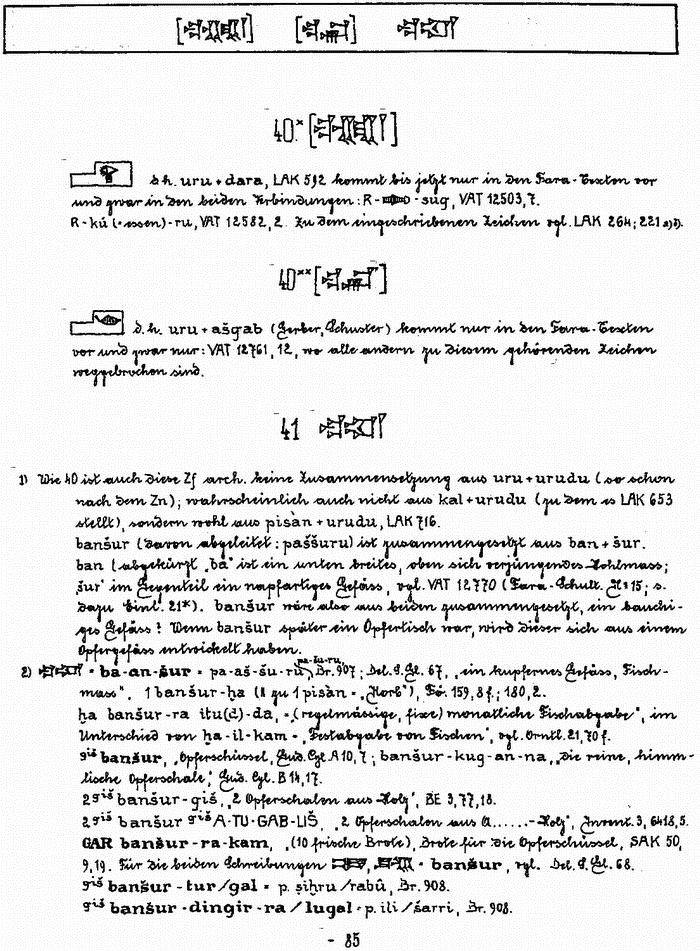 40ˣ
d.h. uru + dara, LAK 592 kommt bis jetzt nur in den Fara-Texten vor
und zwar in den beiden Verbindungen: R- -sug, VAT 12503, 7.
R-kú (=essen)-ru, VAT 12582, 2. Zu dem eingeschriebenen Zeichen vgl. LAK 264; 221
40ˣˣ
d.h. uru + ašgab (Gerber, Schuster) kommt nur in den Fara-Texten
vor und zwar nur: VAT 12761, 12, wo alle andern zu diesem gehörenden Zeichen
weggebrochen sind.
41
1) Wie 40 ist auch diese Zf arch. keine Zusammensetzung aus uru + urudu (so schon
nach dem Zn); wahrscheinlich auch nicht aus kal + urudu (zu dem es LAK 653
stellt), sondern wohl aus pisàn + urudu, LAK 716.
banšur (davon abgeleitet: paššuru) ist zusammengesetzt aus ban + šur.
ban (abgekürzt „ba" ist ein unten breites, oben sich verjüngendes Hohlmass;
„šur" im Gegenteil ein napfartiges Gefäss, vgl. VAT 12770 (Fara-Schult. № 15; s.
dazu Einl. 21*). banšur wäre also aus beiden zusammengesetzt, ein bauchi-
ges Gefäss? Wenn banšur später ein Opfertisch war, wird dieser sich aus einem
Opfergefäss entwickelt haben.
2) = ba-an-šur = pa-aš-šu-ru, pa-šu-ru, Br. 907; Del. S.Gl. 67, „ein kupfernes Gefäss, Fisch-
mass". 1 banšur-ḫa (II zu 1 pisàn = „Korb"), Fö. 159, 8 f.; 180, 2.
ḫa banšur-ra itu(d)-da, = „(regelmässige, fixe) monatliche Fischabgabe", im
Unterschied von ḫa-il-kam = „Festabgabe von Fischen", vgl. Orntl. 21, 70 f.
giš banšur, „Opferschüssel, Gud. Cyl. A 10, 7; banšur-kug-an-na, „die reine, himm-
lische Opferschale", Gud. Cyl. B 14, 17.
2 giš banšur-giš, „2 Opferschalen aus Holz", BE 3, 77, 18.
2 giš banšur giš A-TU-GAB-LIŠ, „2 Opferschalen aus A......-Holz", Invent. 3, 6418, 5.
GAR banšur-ra-kam, „(10 frische Brote), Brote für die Opferschüssel, SAK 50,
9, 19. Für die beiden Schreibungen , = banšur, vgl. Del. S.Gl. 68.
giš banšur-tur/gal = p. ṣiḫru/rabû, Br. 908.
giš banšur-dingir-ra/lugal = p. ili/šarri, Br. 908.
- 85